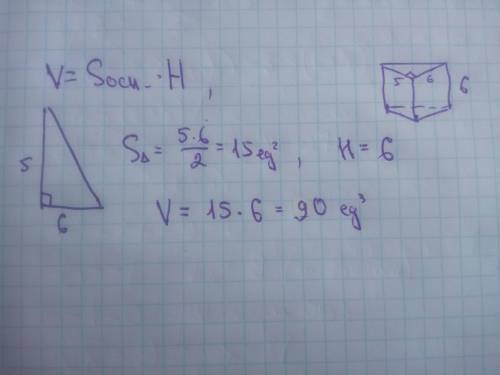 V = Sосн. · H ,
5 6 6
5 S△ = 5·6/2 = 15 ед² , H = 6
6 V = 15 · 6 = 90 ед³